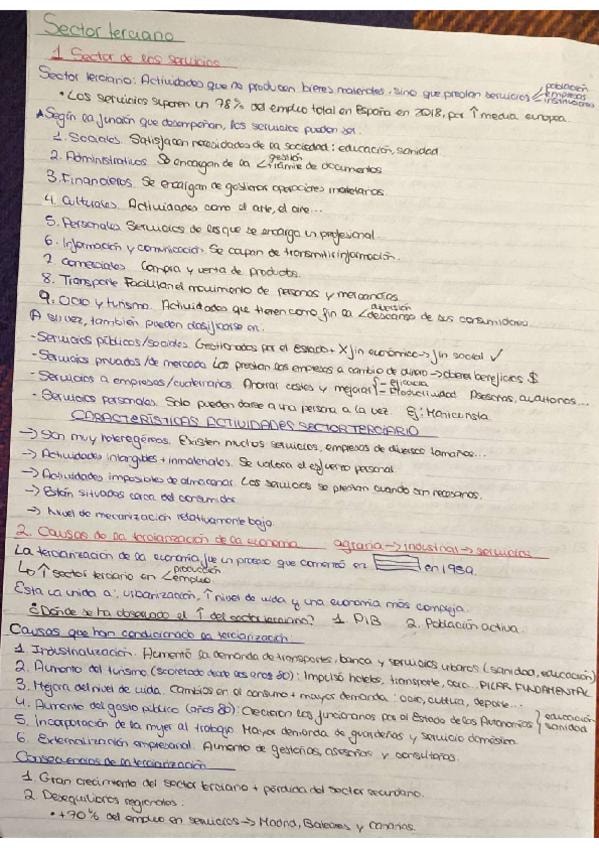 Sector terciario
1. Sector de los servicios
Sector terciario: Actividades que no producen bienes materiales, sino que prestan servicios < población empresas instituciones
• Los servicios suponen un 78% del empleo total en España en 2018, por ↑ media europea.
* Según la función que desempeñan, los servicios pueden ser:
1. Sociales. Satisfacen necesidades de la sociedad: educación, sanidad
2. Administrativos. Se encargan de la < gestión trámite de documentos
3. Financieros. Se encargan de gestionar operaciones monetarias.
4. Culturales. Actividades como el arte, el cine...
5. Personales. Servicios de los que se encarga un profesional.
6. Información y comunicación. Se ocupan de transmitir información.
7. Comerciales. Compra y venta de productos.
8. Transporte. Facilitan el movimiento de personas y mercancías.
9. Ocio y turismo. Actividades que tienen como fin la < diversión descanso de sus consumidores.
A su vez, también pueden clasificarse en:
- Servicios públicos/sociales. Gestionados por el estado + X fin económico → fin social ✓
- Servicios privados/de mercado. Los prestan las empresas a cambio de dinero → obtener beneficios $
- Servicios a empresas/cuaternarios. Ahorrar costes y mejorar { - eficacia - productividad Asesorías, auditorías...
- Servicios personales. Solo pueden darse a una persona a la vez. Ej: Manicurista.
CARACTERÍSTICAS ACTIVIDADES SECTOR TERCIARIO
→ Son muy heterogéneos. Existen muchos servicios, empresas de diverso tamaños...
→ Actividades intangibles + inmateriales. Se valora el esfuerzo personal.
→ Actividades imposibles de almacenar. Los servicios se prestan cuando son necesarios.
→ Están situados cerca del consumidor
→ Nivel de mecanización relativamente bajo.
2. Causas de la terciarización de la economía agraria → industrial → servicios
La terciarización de la economía fue un proceso que comenzó en en 1959.
↳ ↑ sector terciario en < producción empleo
Esta va unida a: urbanización, ↑ nivel de vida y una economía más compleja.
¿Dónde se ha observado el ↑ del sector terciario? 1. PIB 2. Población activa.
Causas que han condicionado la terciarización:
1. Industrialización. Aumentó la demanda de transportes, banca y servicios urbanos (sanidad, educación)
2. Aumento del turismo (sobretodo desde los años 60): Impulsó hoteles, transporte, ocio... PILAR FUNDAMENTAL
3. Mejora del nivel de vida. Cambios en el consumo + mayor demanda: ocio, cultura, deporte...
4. Aumento del gasto público (años 80): Crecieron los funcionarios por el Estado de las Autonomías } educación sanidad
5. Incorporación de la mujer al trabajo. Mayor demanda de guarderías y servicio doméstico.
6. Externalización empresarial. Aumento de gestorías, asesorías y consultorías.
Consecuencias de la terciarización
1. Gran crecimiento del sector terciario + pérdida del sector secundario.
2. Desequilibrios regionales:
• +70% del empleo en servicios → Madrid, Baleares y Canarias.